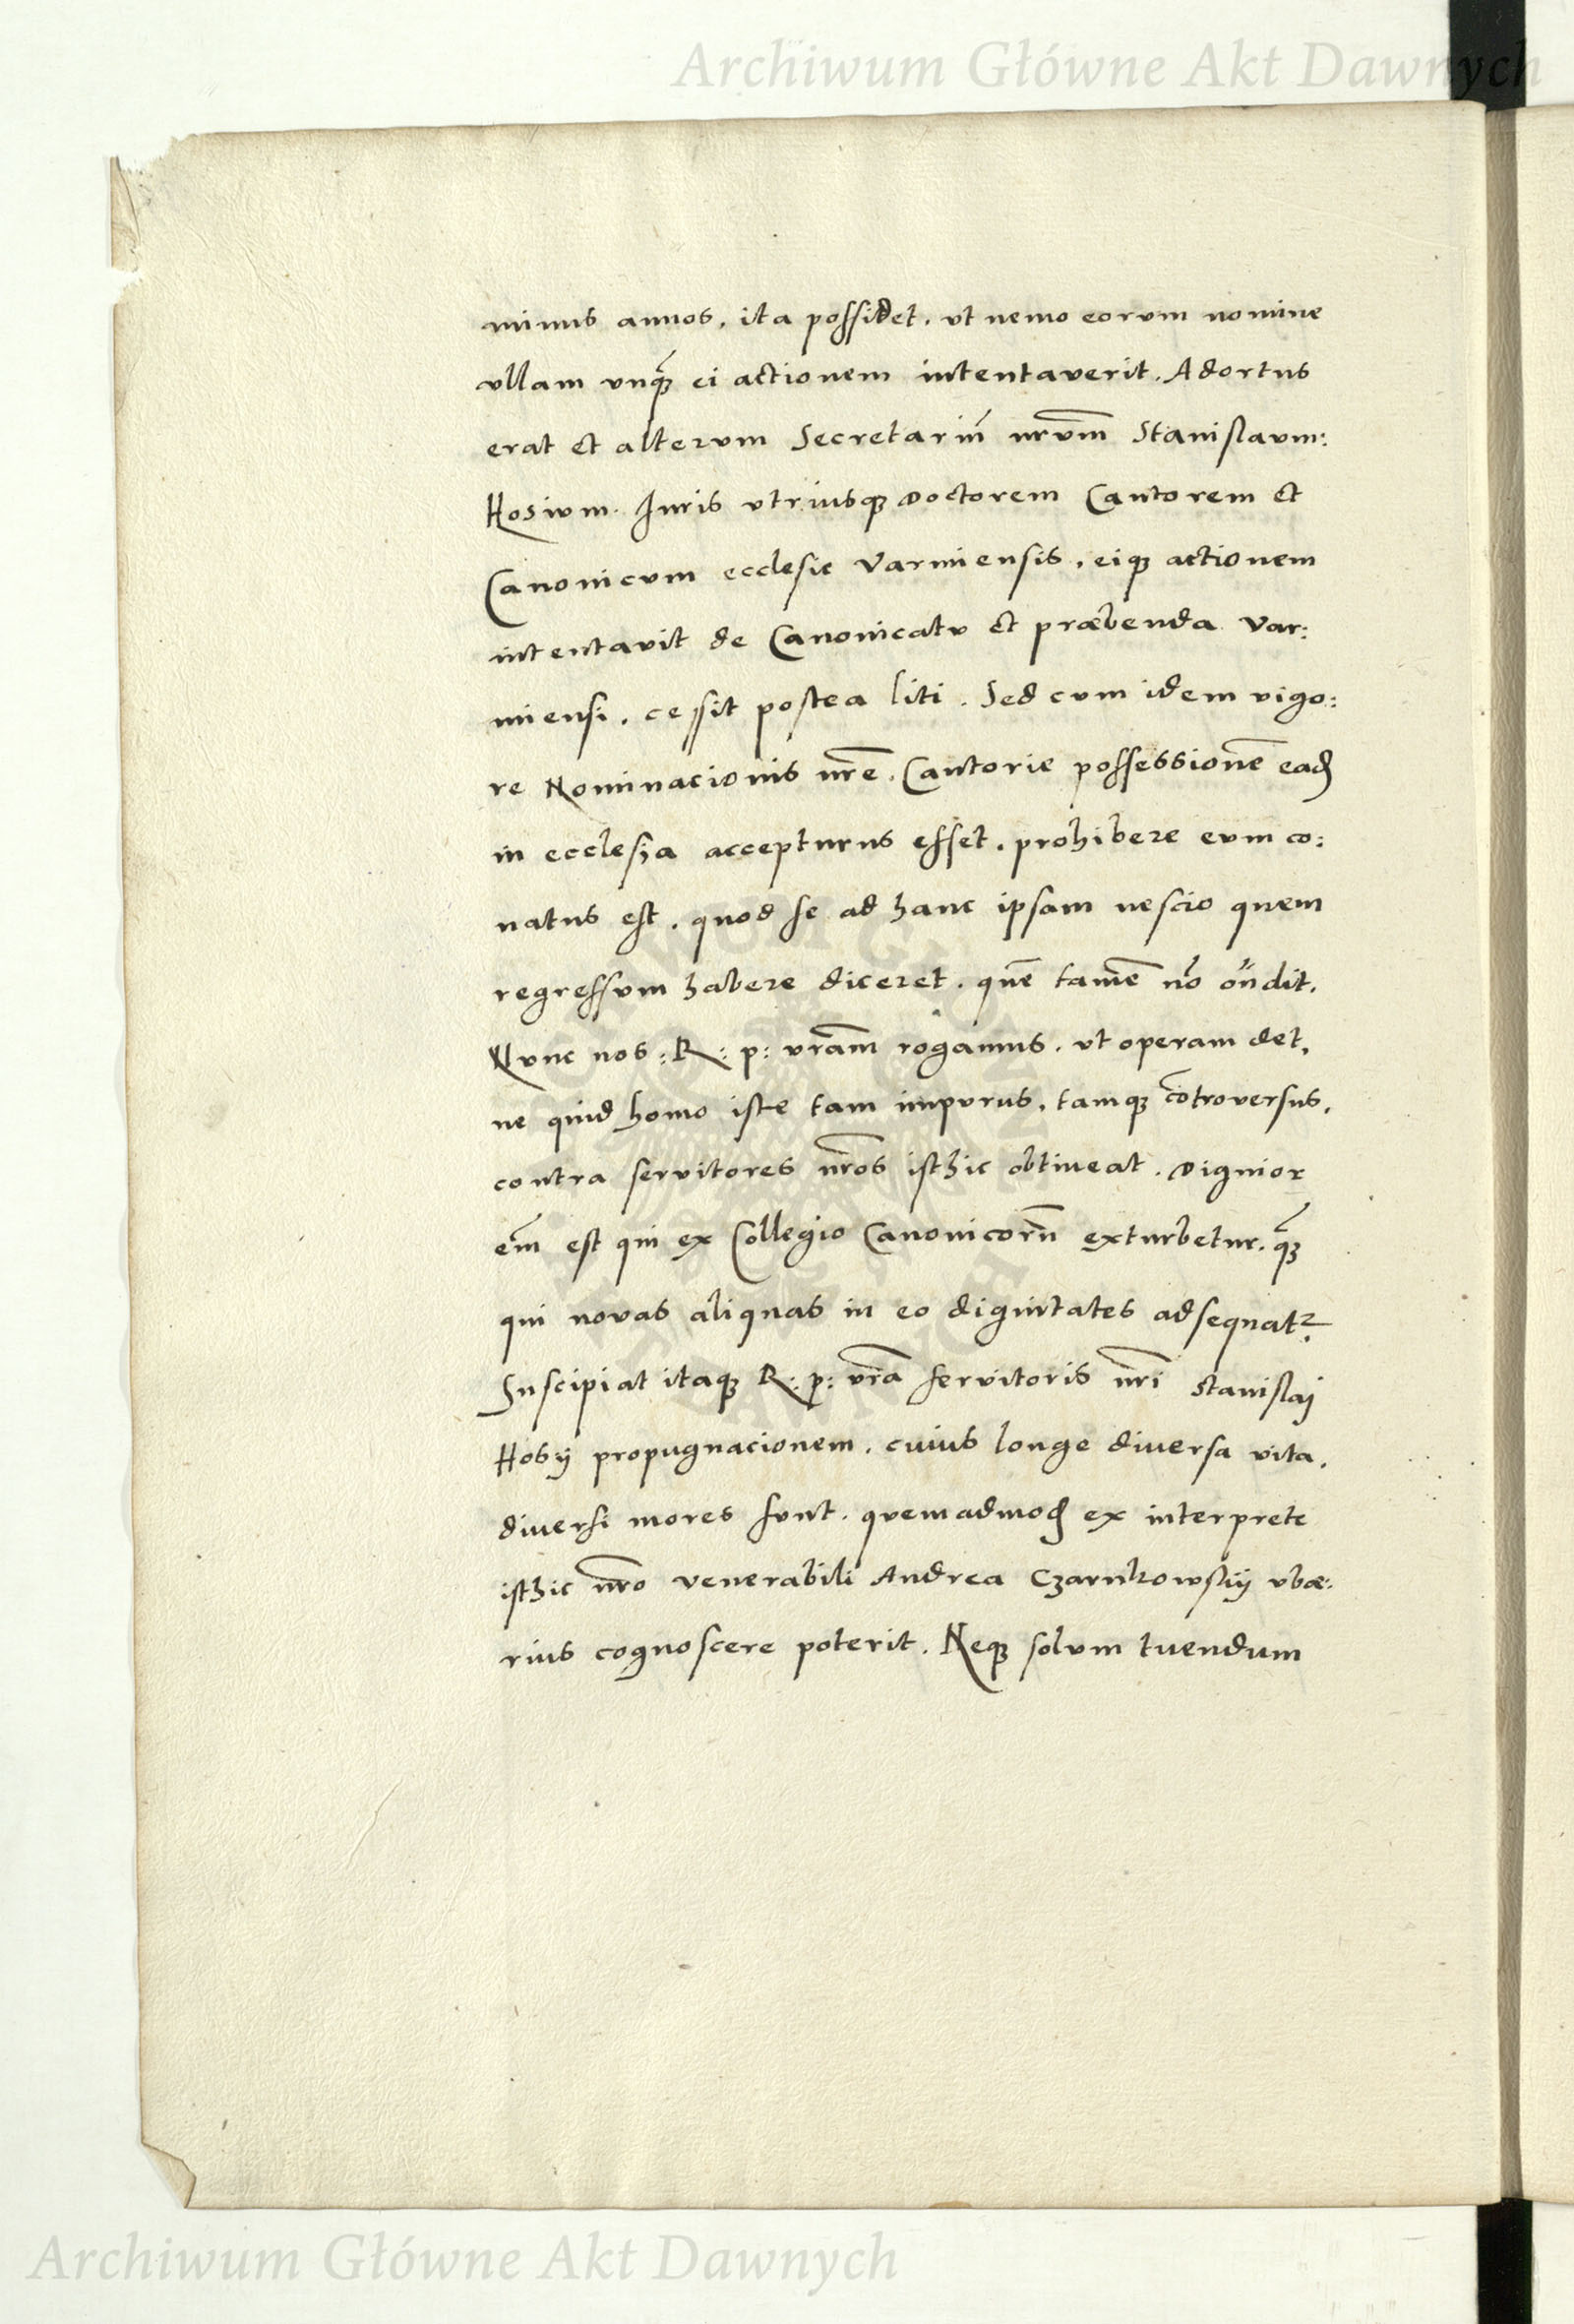 Archiwum Główne Akt Dawnych
minus annos, ita possidet, ut nemo eorum nomine
ullam unq̃ȝ ei actionem intentaverit. Adortus
erat et alterum Secretariũ nrũm Stanislaum:
Hosium. Iuris utriusqȝ Doctorem Cantorem et
Canonicum ecclesie Varmiensis, eiqȝ actionem
intentavit de Canonicatu et præbenda Var:
miensi, cessit postea liti. Sed cum idem vigo:
re Nominacionis nr̃e, Cantorie possessionẽ eadẽ
in ecclesia accepturus esset, prohibere eum co:
natus est, quod se ad hanc ipsam nescio quem
regressum habere diceret, quẽ tamẽ nõ oñdit.
Nunc nos: R: p: vr̃am rogamus, ut operam det,
ne quid homo iste tam impurus, tamqȝ cõtroversus,
contra servitores nr̃os isthic obtineat. Dignior
em̃ est qui ex Collegio Canonicorũ exturbetur, q̃ȝ
qui novas aliquas in eo dignitates adsequat.
Suscipiat itaqȝ R: p: vr̃a servitoris nr̃i Stanislaj
Hosij propugnacionem, cuius longe diversa vita,
diversi mores sunt, quemadmodũ ex interprete
isthic nr̃o venerabili Andrea Czarnkowskij ubæ:
rius cognoscere poterit. Neqȝ solum tuendum
Archiwum Główne Akt Dawnych